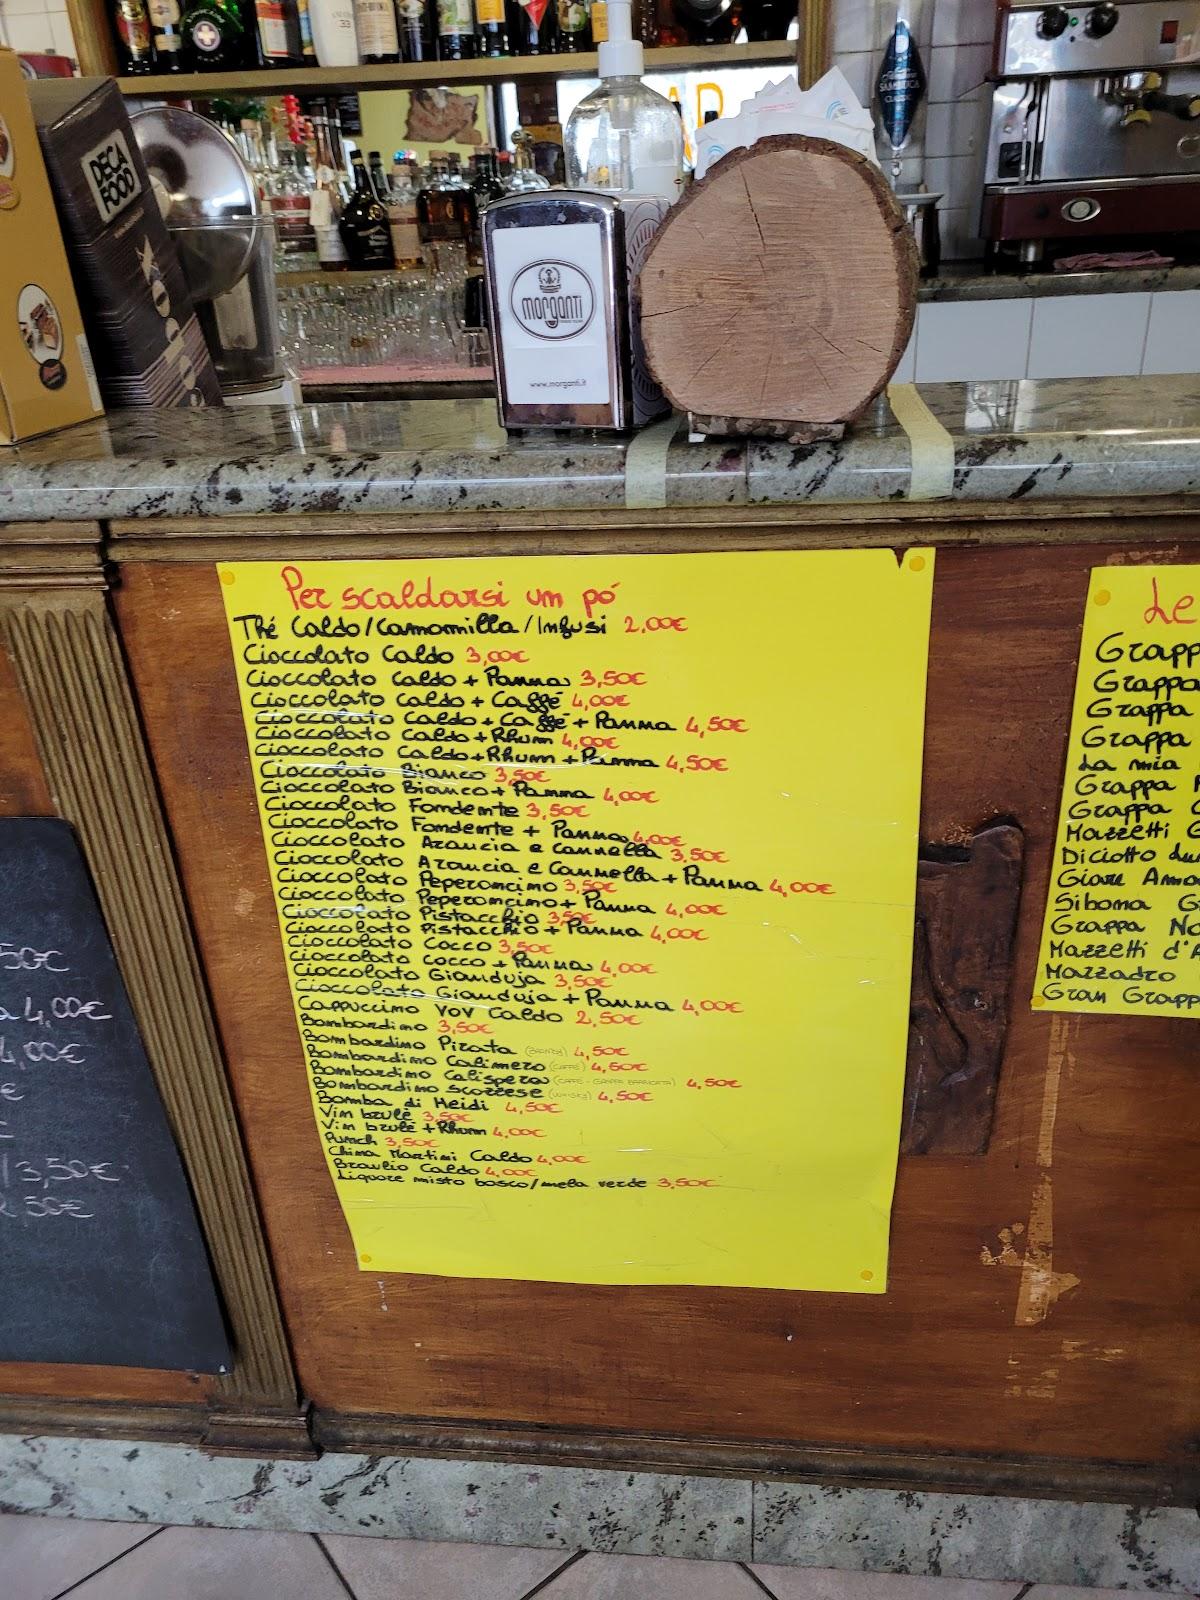 DECA
FOOD
SAMBUCA
CLASSIC
morganti
www.morganti.it
Per scaldarsi um pó
Thé Caldo/Camomilla/Infusi 2,00€
Cioccolato Caldo 3,00€
Cioccolato Caldo + Panna 3,50€
Cioccolato Caldo + Caffé 4,00€
Cioccolato Caldo + Caffé + Panna 4,50€
Cioccolato Caldo + Rhum 4,00€
Cioccolato Caldo + Rhum + Panna 4,50€
Cioccolato Bianco 3,50€
Cioccolato Bianco + Panna 4,00€
Cioccolato Fondente 3,50€
Cioccolato Fondente + Panna 4,00€
Cioccolato Arancia e Cannella 3,50€
Cioccolato Arancia e Cannella + Panna 4,00€
Cioccolato Peperoncino 3,50€
Cioccolato Peperoncino + Panna 4,00€
Cioccolato Pistacchio 3,50€
Cioccolato Pistacchio + Panna 4,00€
Cioccolato Cocco 3,50€
Cioccolato Cocco + Panna 4,00€
Cioccolato Gianduja 3,50€
Cioccolato Gianduja + Panna 4,00€
Cappuccino VOV Caldo 2,50€
Bombardino 3,50€
Bombardino Pirata (BRANDY) 4,50€
Bombardino Calimero (CAFFÉ) 4,50€
Bombardino Calispera (CAFFÉ - GRAPPA BARRICATA) 4,50€
Bombardino Scozzese (WHISKY) 4,50€
Bomba di Heidi 4,50€
Vin brulé 3,50€
Vin brulé + Rhum 4,00€
Punch 3,50€
China Martini Caldo 4,00€
Braulio Caldo 4,00€
Liquore misto bosco/mela verde 3,50€
Le
Grapp
Grappa
Grappa
Grappa
La mia
Grappa
Grappa
Mazzetti G
Diciotto Lu
Giare Ama
Sibona G
Grappa No
Mazzetti d'A
Mazzadro
Gran Grapp
50€
a 4,00€
4,00€
€
3,50€
,50€